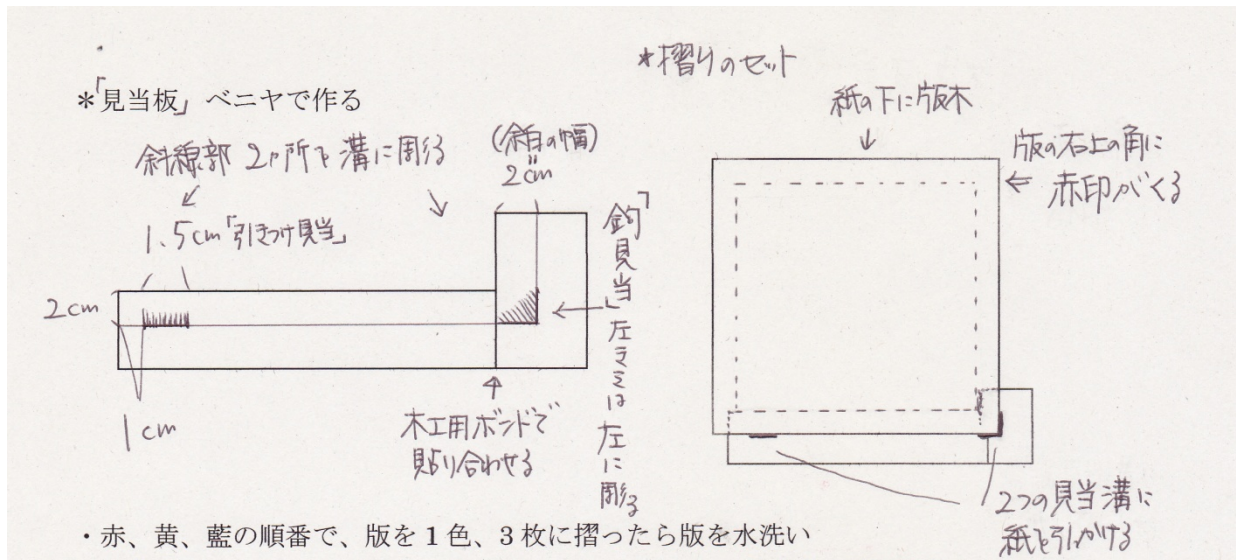 *「見当板」ベニヤで作る
斜線部 2ヶ所を溝に彫る
(余白の幅)
〃
2cm
1.5cm「引きつけ見当」
2cm
1cm
「鈎見当」左ききは左に彫る
木工用ボンドで
貼り合わせる
*摺りのセット
紙の下に版木
版の右上の角に
赤印がくる
2つの見当溝に
紙を引っかける
・赤、黄、藍の順番で、版を1色、3枚に摺ったら版を水洗い